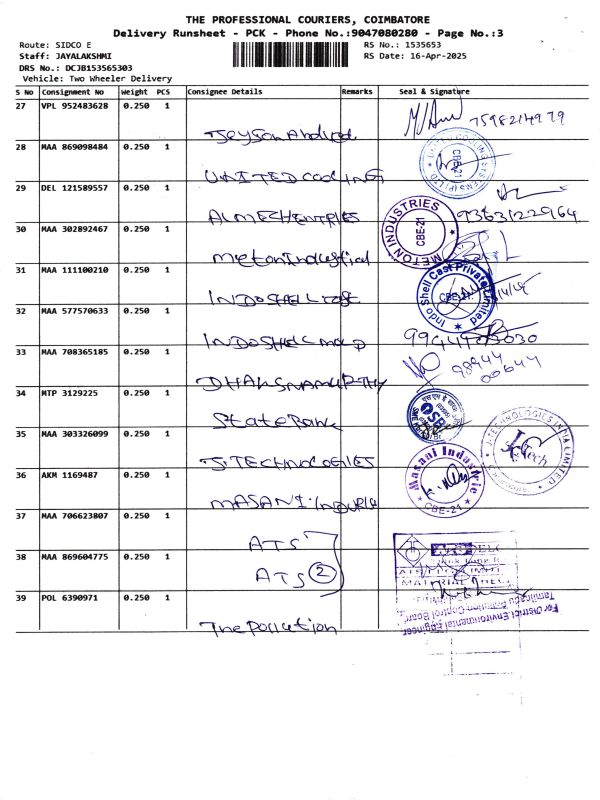 THE PROFESSIONAL COURIERS, COIMBATORE
Delivery Runsheet - PCK - Phone No.:9047080280 - Page No.:3
Route: SIDCO E
RS No.: 1535653
Staff: JAYALAKSHMI
RS Date: 16-Apr-2025
DRS No.: DCJB153565303
Vehicle: Two Wheeler Delivery
S No Consignment No Weight PCS Consignee Details Remarks Seal & Signature
27 VPL 952483628 0.250 1
7598214979
28 MAA 869098484 0.250 1
UNITED COOLINGS
UNITED COOLING SYSTEMS (P) LTD CBE-21
29 DEL 121589557 0.250 1
9363122964
METON INDUSTRIES CBE-21
30 MAA 302892467 0.250 1
Meton Industrial
31 MAA 111100210 0.250 1
INDOSHELL cast
Indo Shell Cast Private Limited CBE-21
32 MAA 577570633 0.250 1
INDOSHELL mold
33 MAA 708365185 0.250 1
98944 00644
34 MTP 3129225 0.250 1
State Bank
SBI
35 MAA 303326099 0.250 1
J. TECHNOLOGIES
J-TECHNOLOGIES INDIA LIMITED
36 AKM 1169487 0.250 1
MASANI.
Masani Industrie CBE-21
37 MAA 706623807 0.250 1
ATS
38 MAA 869604775 0.250 1
ATS 2
MATERIAL
39 POL 6390971 0.250 1
The Pollution
For District Environmental Engineer
Tamilnadu Pollution Control Board